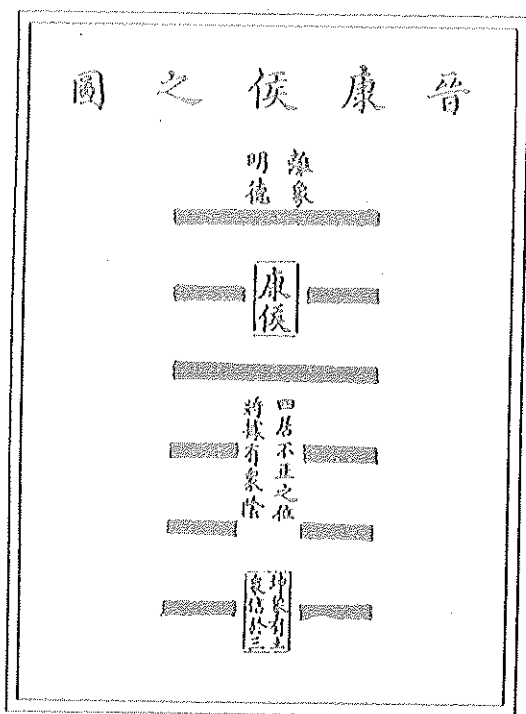 晉康侯之圖
離象
明德
康侯
四居不正之位
將據有衆陰
坤象有土
衆信於三